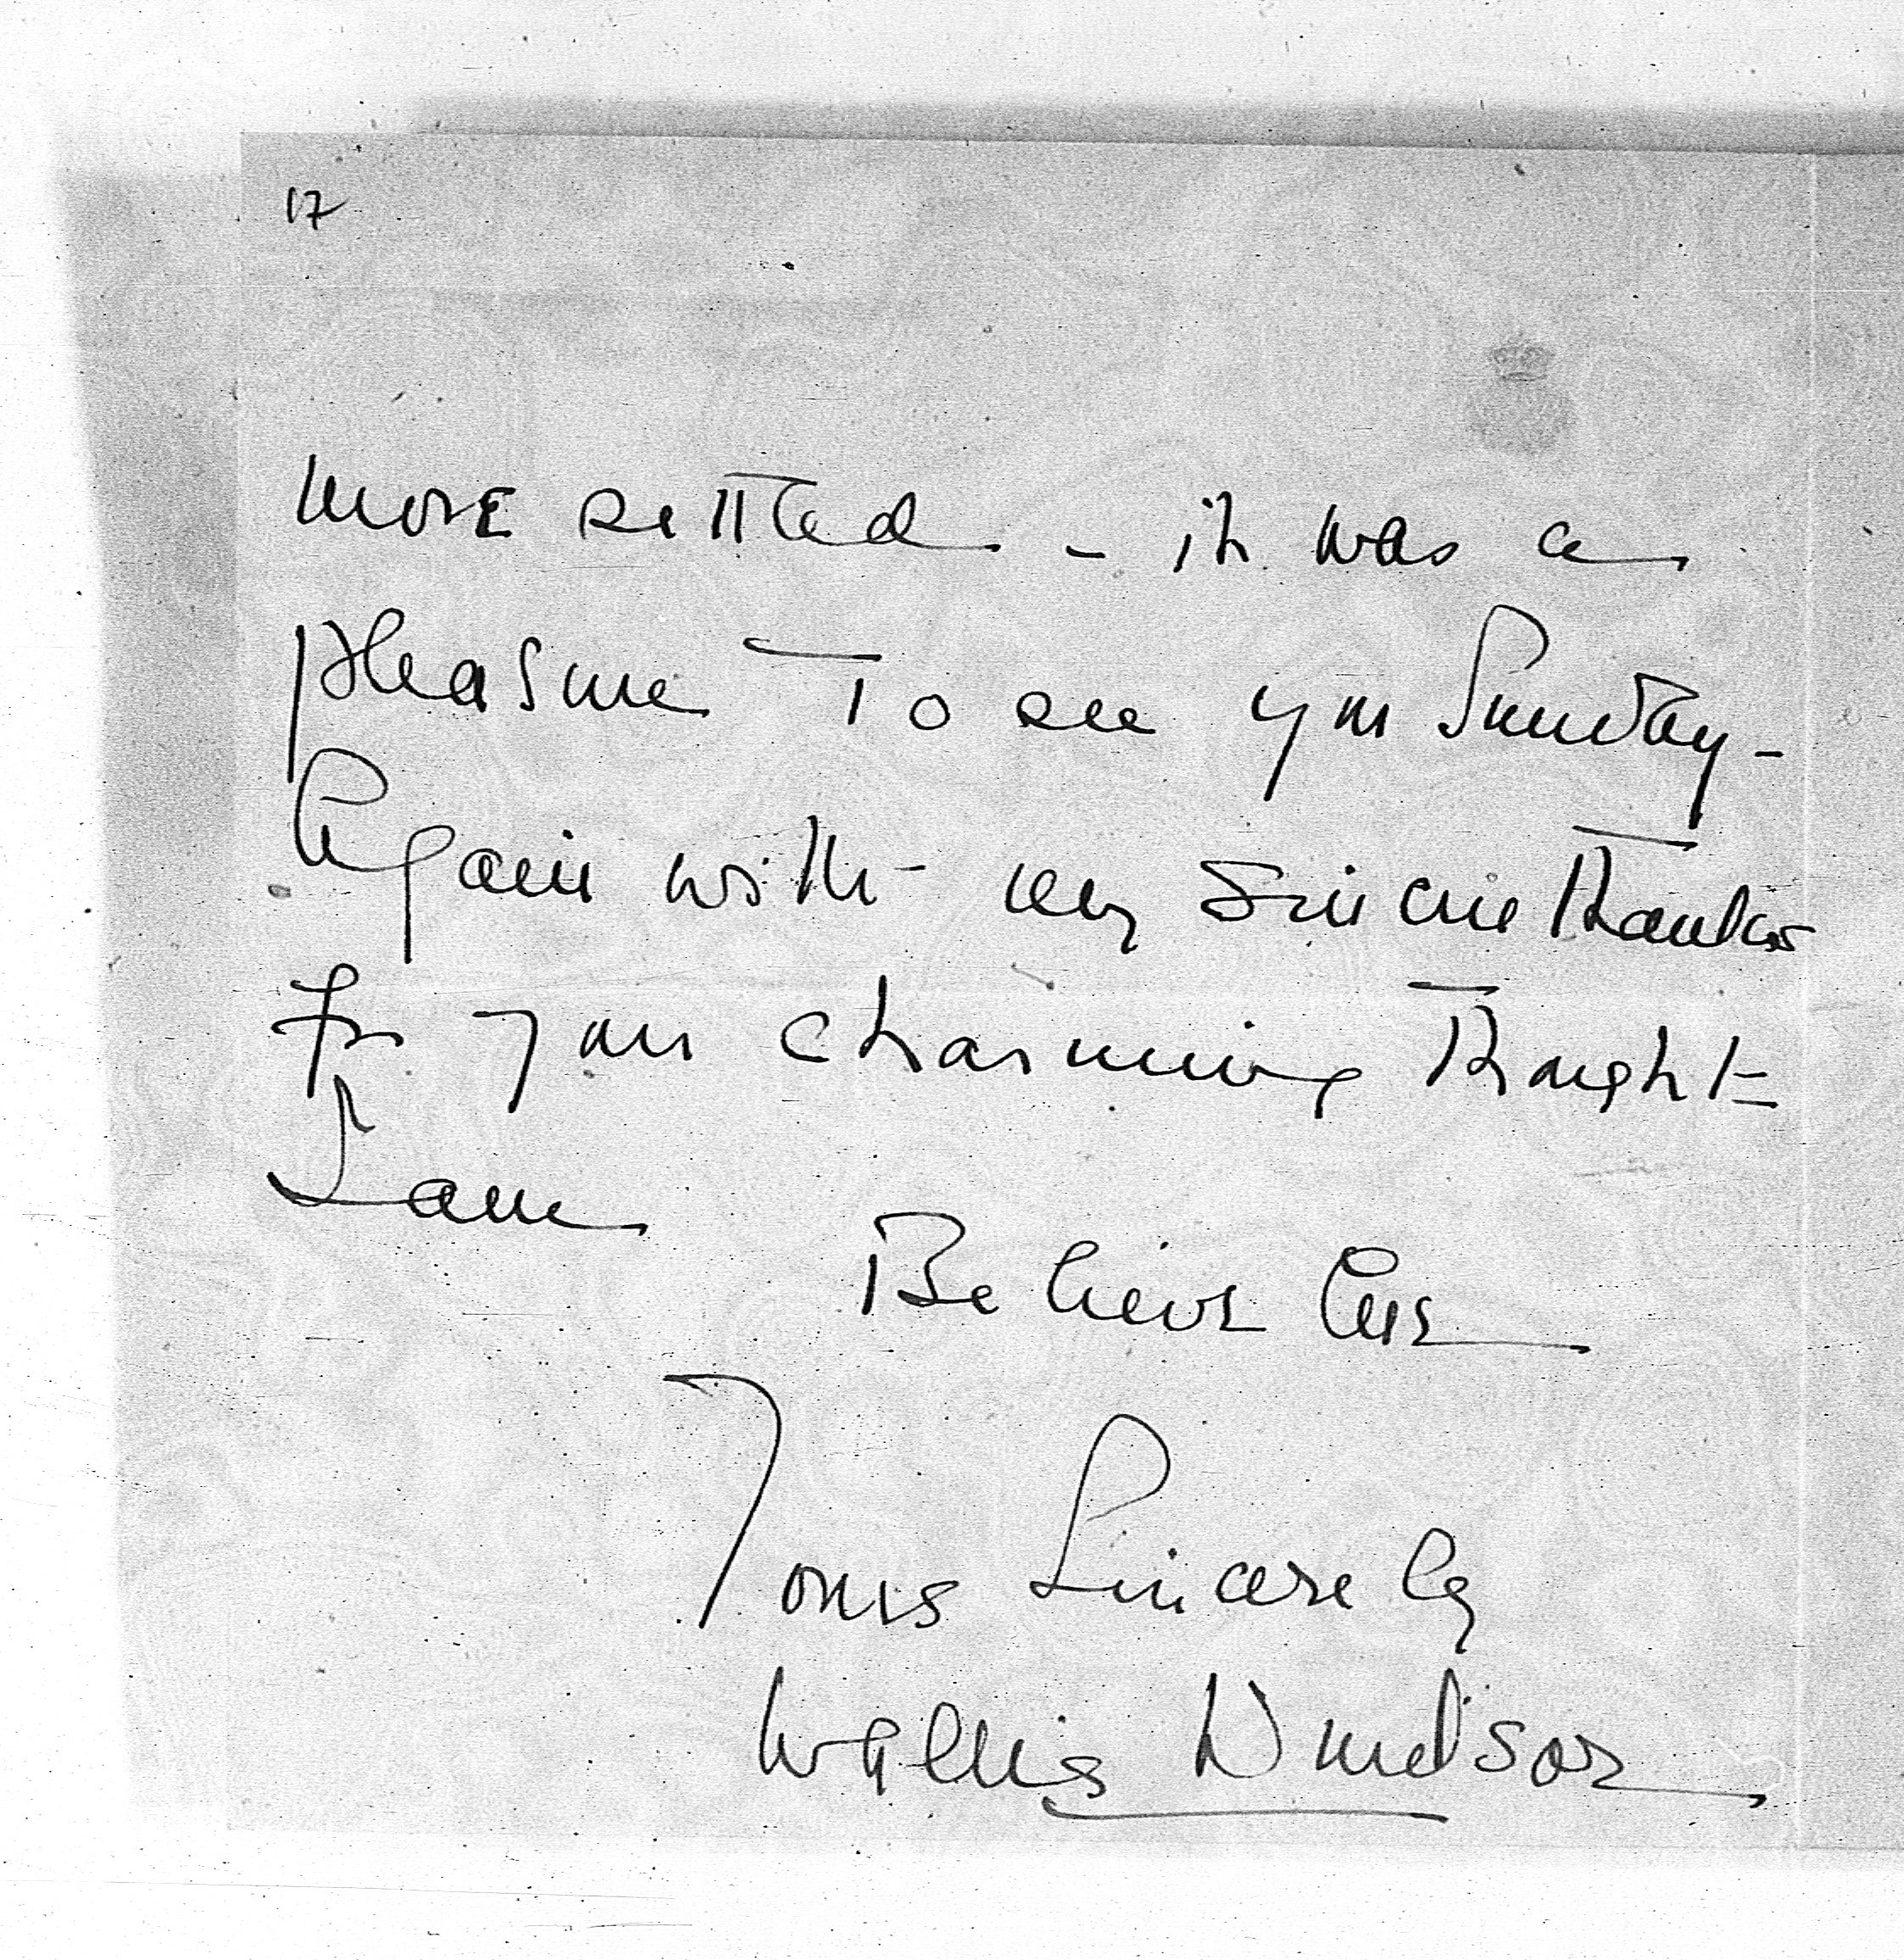 17
more settled - it was a
pleasure to see you Sunday -
Again with my sincere thanks
for your charming thought -
I am
Believe me
Yours Sincerely
Wallis Windsor